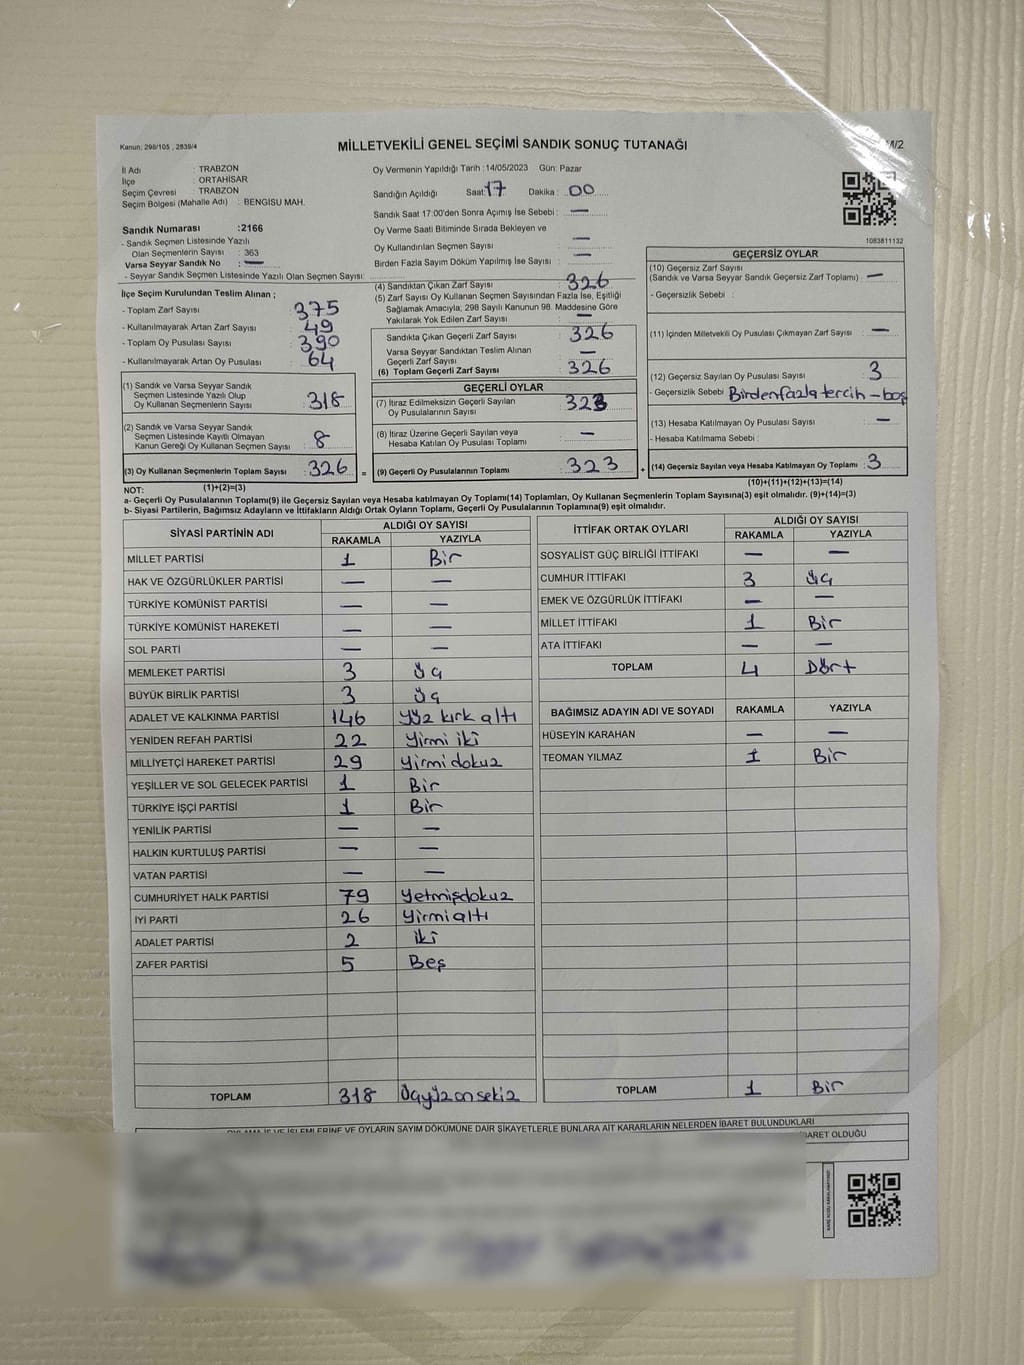 Kanun: 298/105 , 2839/4
MİLLETVEKİLİ GENEL SEÇİMİ SANDIK SONUÇ TUTANAĞI
İl Adı : TRABZON
İlçe : ORTAHİSAR
Seçim Çevresi : TRABZON
Seçim Bölgesi (Mahalle Adı) : BENGİSU MAH.
Oy Vermenin Yapıldığı Tarih : 14/05/2023 Gün: Pazar
Sandığın Açıldığı Saat: 17 Dakika : 00
Sandık Saat 17:00'den Sonra Açılmış İse Sebebi : —
Oy Verme Saati Bitiminde Sırada Bekleyen ve
Oy Kullandırılan Seçmen Sayısı : —
Birden Fazla Sayım Döküm Yapılmış İse Sayısı : —
Sandık Numarası :2166
- Sandık Seçmen Listesinde Yazılı
Olan Seçmenlerin Sayısı : 363
Varsa Seyyar Sandık No : —
- Seyyar Sandık Seçmen Listesinde Yazılı Olan Seçmen Sayısı:
1083811132
İlçe Seçim Kurulundan Teslim Alınan ;
- Toplam Zarf Sayısı : 375
- Kullanılmayarak Artan Zarf Sayısı : 49
- Toplam Oy Pusulası Sayısı : 390
- Kullanılmayarak Artan Oy Pusulası : 64
(1) Sandık ve Varsa Seyyar Sandık
Seçmen Listesinde Yazılı Olup
Oy Kullanan Seçmenlerin Sayısı : 318
(2) Sandık ve Varsa Seyyar Sandık
Seçmen Listesinde Kayıtlı Olmayan
Kanun Gereği Oy Kullanan Seçmen Sayısı : 8
(3) Oy Kullanan Seçmenlerin Toplam Sayısı : 326
(1)+(2)=(3)
(4) Sandıktan Çıkan Zarf Sayısı : 326
(5) Zarf Sayısı Oy Kullanan Seçmen Sayısından Fazla İse, Eşitliği
Sağlamak Amacıyla; 298 Sayılı Kanunun 98. Maddesine Göre
Yakılarak Yok Edilen Zarf Sayısı : —
Sandıkta Çıkan Geçerli Zarf Sayısı : 326
Varsa Seyyar Sandıktan Teslim Alınan
Geçerli Zarf Sayısı : —
(6) Toplam Geçerli Zarf Sayısı : 326
GEÇERLİ OYLAR
(7) İtiraz Edilmeksizin Geçerli Sayılan
Oy Pusulalarının Sayısı : 323
(8) İtiraz Üzerine Geçerli Sayılan veya
Hesaba Katılan Oy Pusulası Toplamı : —
= (9) Geçerli Oy Pusulalarının Toplamı : 323
GEÇERSİZ OYLAR
(10) Geçersiz Zarf Sayısı
(Sandık ve Varsa Seyyar Sandık Geçersiz Zarf Toplamı) : —
- Geçersizlik Sebebi :
(11) İçinden Milletvekili Oy Pusulası Çıkmayan Zarf Sayısı : —
(12) Geçersiz Sayılan Oy Pusulası Sayısı : 3
- Geçersizlik Sebebi : Birden fazla tercih – boş
(13) Hesaba Katılmayan Oy Pusulası Sayısı : —
- Hesaba Katılmama Sebebi :
+ (14) Geçersiz Sayılan veya Hesaba Katılmayan Oy Toplamı : 3
(10)+(11)+(12)+(13)=(14)
NOT:
a- Geçerli Oy Pusulalarının Toplamı(9) ile Geçersiz Sayılan veya Hesaba katılmayan Oy Toplamı(14) Toplamları, Oy Kullanan Seçmenlerin Toplam Sayısına(3) eşit olmalıdır. (9)+(14)=(3)
b- Siyasi Partilerin, Bağımsız Adayların ve İttifakların Aldığı Ortak Oyların Toplamı, Geçerli Oy Pusulalarının Toplamına(9) eşit olmalıdır.
SİYASİ PARTİNİN ADI ALDIĞI OY SAYISI
RAKAMLA YAZIYLA
MİLLET PARTİSİ 1 Bir
HAK VE ÖZGÜRLÜKLER PARTİSİ — —
TÜRKİYE KOMÜNİST PARTİSİ — —
TÜRKİYE KOMÜNİST HAREKETİ — —
SOL PARTİ — —
MEMLEKET PARTİSİ 3 Üç
BÜYÜK BİRLİK PARTİSİ 3 Üç
ADALET VE KALKINMA PARTİSİ 146 Yüz kırk altı
YENİDEN REFAH PARTİSİ 22 Yirmi iki
MİLLİYETÇİ HAREKET PARTİSİ 29 Yirmi dokuz
YEŞİLLER VE SOL GELECEK PARTİSİ 1 Bir
TÜRKİYE İŞÇİ PARTİSİ 1 Bir
YENİLİK PARTİSİ — —
HALKIN KURTULUŞ PARTİSİ — —
VATAN PARTİSİ — —
CUMHURİYET HALK PARTİSİ 79 Yetmişdokuz
İYİ PARTİ 26 Yirmi altı
ADALET PARTİSİ 2 İki
ZAFER PARTİSİ 5 Beş
TOPLAM 318 Üçyüz on sekiz
İTTİFAK ORTAK OYLARI ALDIĞI OY SAYISI
RAKAMLA YAZIYLA
SOSYALİST GÜÇ BİRLİĞİ İTTİFAKI — —
CUMHUR İTTİFAKI 3 Üç
EMEK VE ÖZGÜRLÜK İTTİFAKI — —
MİLLET İTTİFAKI 1 Bir
ATA İTTİFAKI — —
TOPLAM 4 Dört
BAĞIMSIZ ADAYIN ADI VE SOYADI RAKAMLA YAZIYLA
HÜSEYİN KARAHAN — —
TEOMAN YILMAZ 1 Bir
TOPLAM 1 Bir
İŞLEMLERİNE VE OYLARIN SAYIM DÖKÜMÜNE DAİR ŞİKAYETLERLE BUNLARA AİT KARARLARIN NELERDEN İBARET BULUNDUKLARI
OLDUĞU